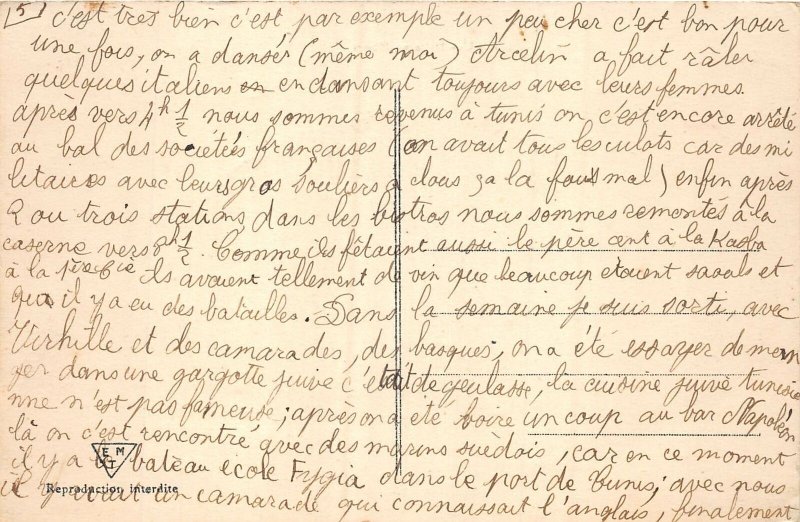 5) c'est très bien c'est par exemple un peu cher c'est bon pour
une fois, on a dansé (même moi) Arcelin a fait râler
quelques italiens en en dansant toujours avec leurs femmes.
après vers 4h 1/2 nous sommes revenus à tunis on c'est encore arrêté
au bal des sociétés françaises (on avait tous les culots car des mi
litaires avec leurs gros souliers à clous ça la fous mal) enfin après
2 ou trois stations dans les bistros nous sommes remontés à la
caserne vers h 1/2. Comme ils fêtaient aussi le père cent à la Kasba
à la 1ère Cie ils avaient tellement de vin que beaucoup etaient saouls et
qu il y a eu des batailles. Dans la semaine je suis sorti, avec
Virhille et des camarades, des basques, on a été essayer de man
ger dans une gargotte juive c'était dégeulasse, la cuisine juive tunisie
nne n'est pas fameuse; après on a été boire un coup au bar Napoléon
là on c'est rencontré avec des marins suédois, car en ce moment
il y a le bateau école Fygia dans le port de Tunis; avec nous
il y avait un camarade qui connaissait l'anglais, finalement
EMT
Reproduction interdite